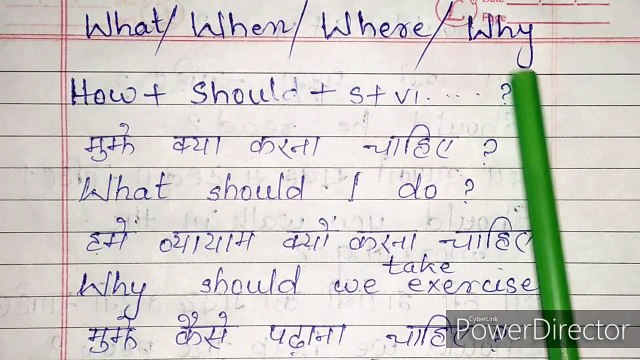 What/ When/ Where/ Why
How + Should + S + V1 .... ?
मुझे क्या करना चाहिए ?
What should I do ?
हमे व्यायाम क्यों करना चाहिए
take
Why should we exercise
मुझे कैसे पढ़ाना चाहिए ?
CyberLink
PowerDirector